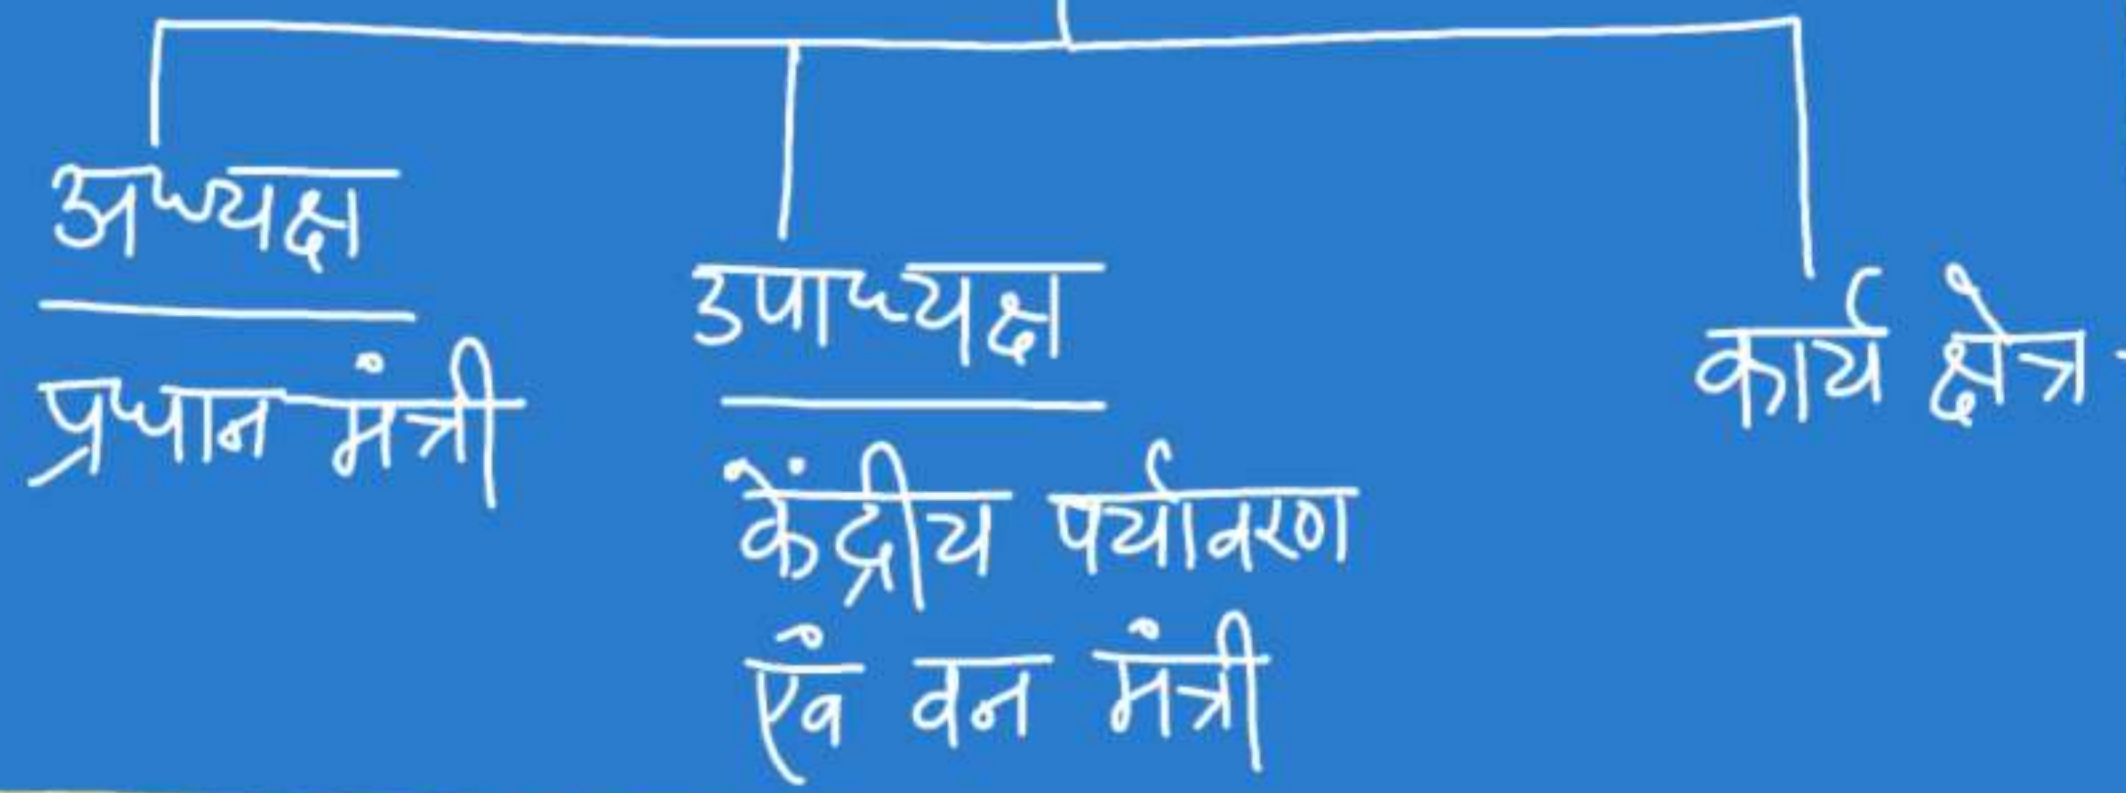 अध्यक्ष
प्रधान मंत्री
उपाध्यक्ष
केंद्रीय पर्यावरण
एंव वन मंत्री
कार्य क्षेत्र -